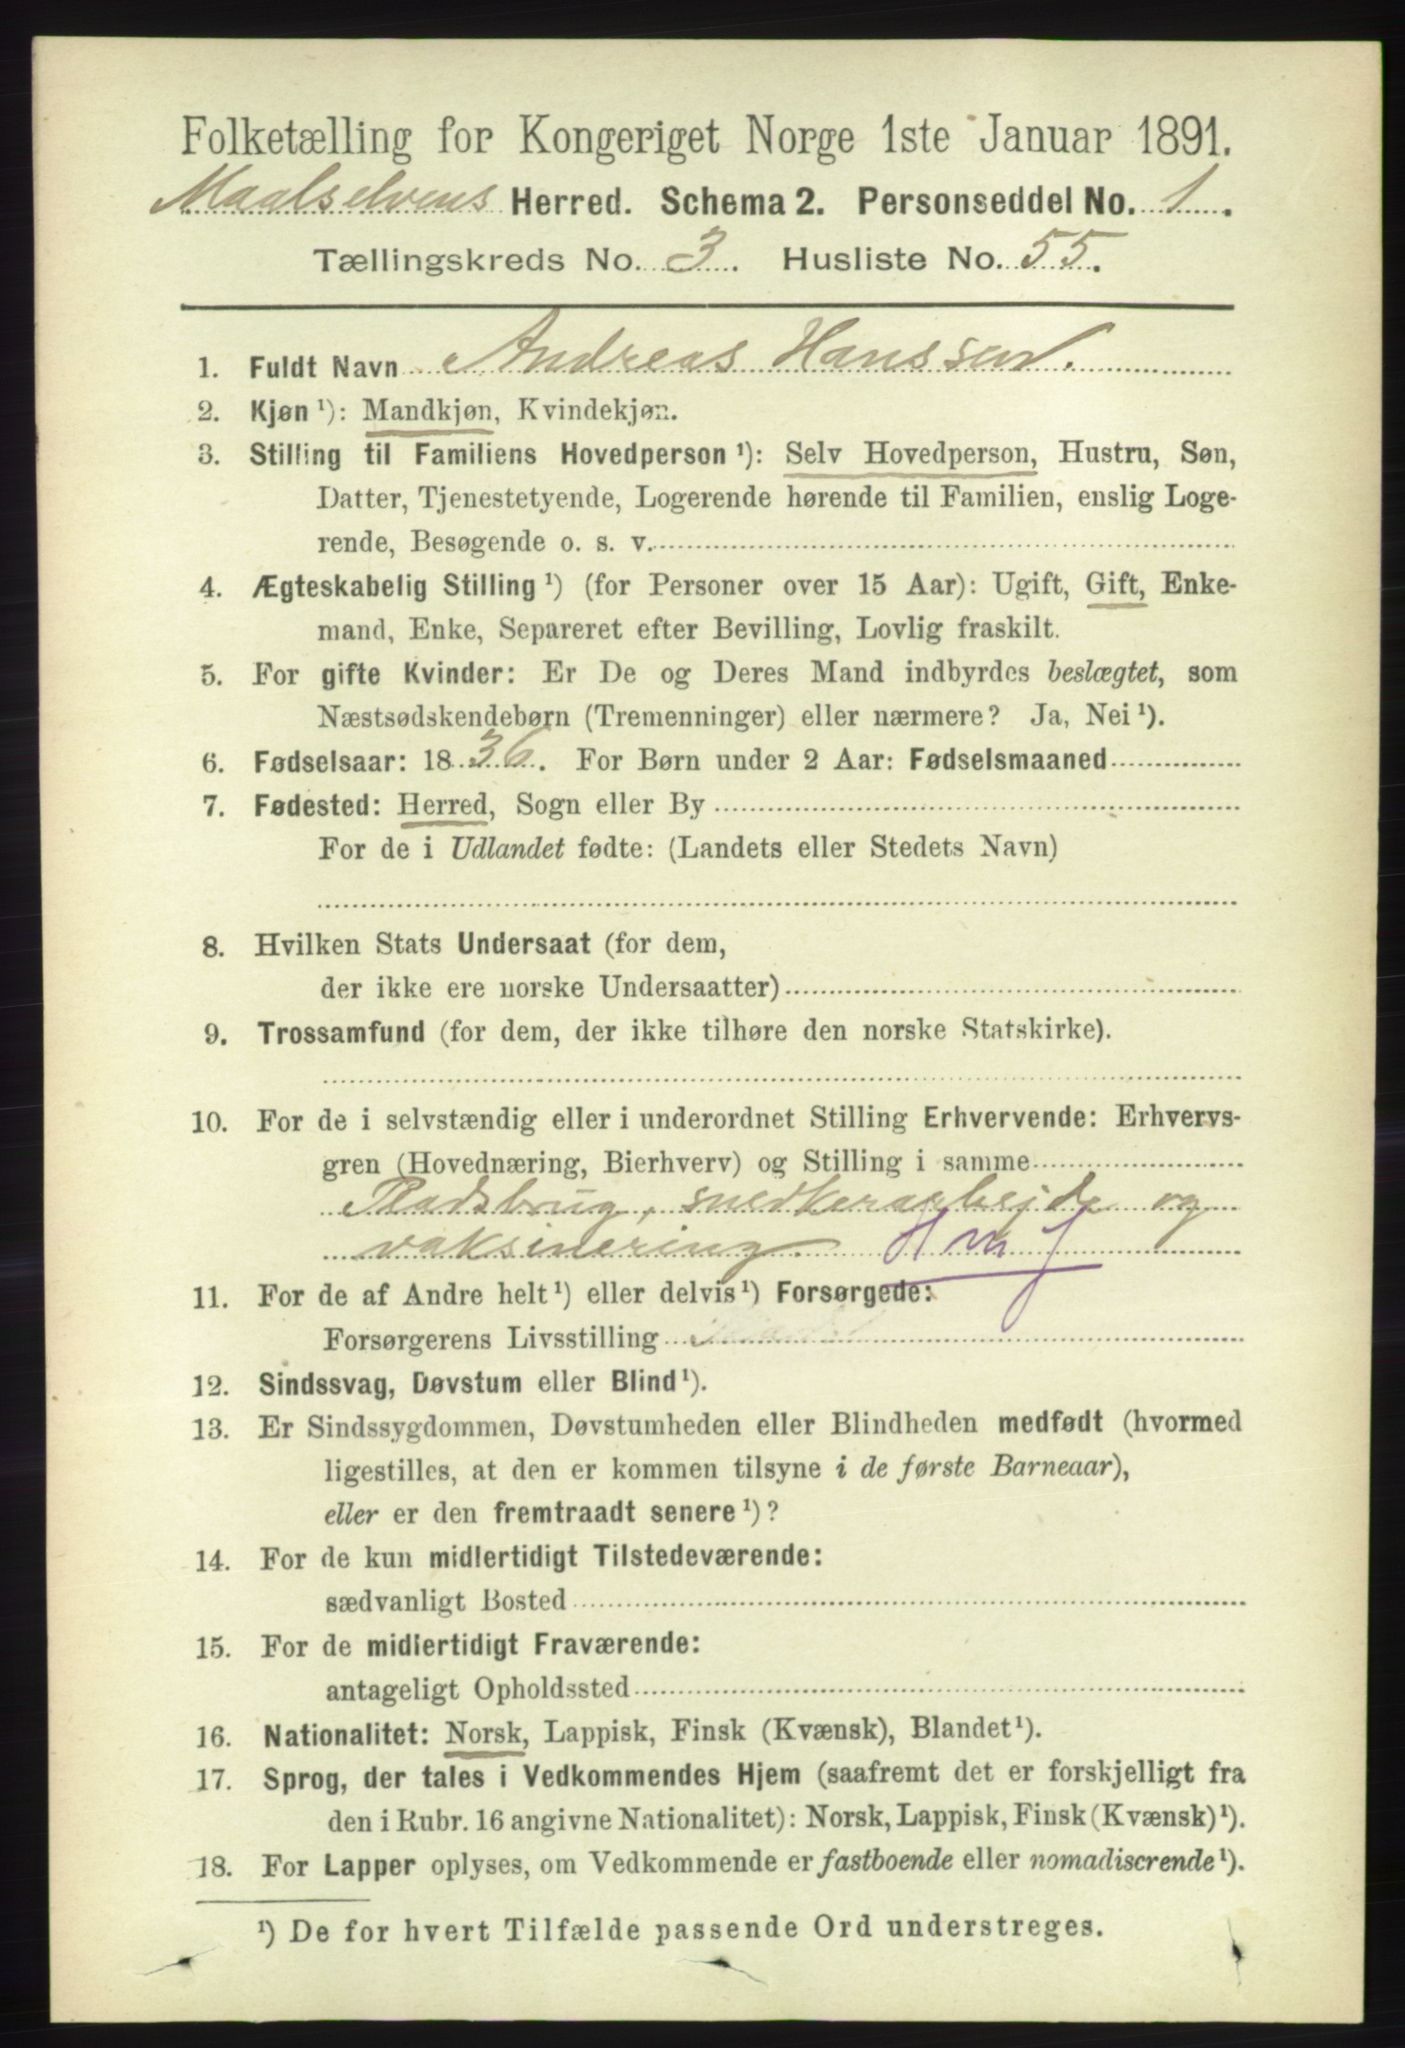 Folketælling for Kongeriget Norge 1ste Januar 1891.
Maalselvens Herred. Schema 2. Personseddel No. 1.
Tællingskreds No. 3. Husliste No. 55.
1. Fuldt Navn Andreas Hanssen.
2. Kjøn ¹): Mandkjøn, Kvindekjøn.
3. Stilling til Familiens Hovedperson ¹): Selv Hovedperson, Hustru, Søn,
Datter, Tjenestetyende, Logerende hørende til Familien, enslig Loge-
rende, Besøgende o. s. v.
4. Ægteskabelig Stilling ¹) (for Personer over 15 Aar): Ugift, Gift, Enke-
mand, Enke, Separeret efter Bevilling, Lovlig fraskilt.
5. For gifte Kvinder: Er De og Deres Mand indbyrdes beslægtet, som
Næstsødskendebørn (Tremenninger) eller nærmere? Ja, Nei ¹).
6. Fødselsaar: 1836. For Børn under 2 Aar: Fødselsmaaned
7. Fødested: Herred, Sogn eller By
For de i Udlandet fødte: (Landets eller Stedets Navn)
8. Hvilken Stats Undersaat (for dem,
der ikke ere norske Undersaatter)
9. Trossamfund (for dem, der ikke tilhøre den norske Statskirke).
10. For de i selvstændig eller i underordnet Stilling Erhvervende: Erhvervs-
gren (Hovednæring, Bierhverv) og Stilling i samme
Pladsbrug, snedkerarbejde og
vaksinering. Hmf
11. For de af Andre helt ¹) eller delvis ¹) Forsørgede:
Forsørgerens Livsstilling
12. Sindssvag, Døvstum eller Blind ¹).
13. Er Sindssygdommen, Døvstumheden eller Blindheden medfødt (hvormed
ligestilles, at den er kommen tilsyne i de første Barneaar),
eller er den fremtraadt senere ¹)?
14. For de kun midlertidigt Tilstedeværende:
sædvanligt Bosted
15. For de midlertidigt Fraværende:
antageligt Opholdssted
16. Nationalitet: Norsk, Lappisk, Finsk (Kvænsk), Blandet ¹).
17. Sprog, der tales i Vedkommendes Hjem (saafremt det er forskjelligt fra
den i Rubr. 16 angivne Nationalitet): Norsk, Lappisk, Finsk (Kvænsk) ¹).
18. For Lapper oplyses, om Vedkommende er fastboende eller nomadiserende ¹).
¹) De for hvert Tilfælde passende Ord understreges.